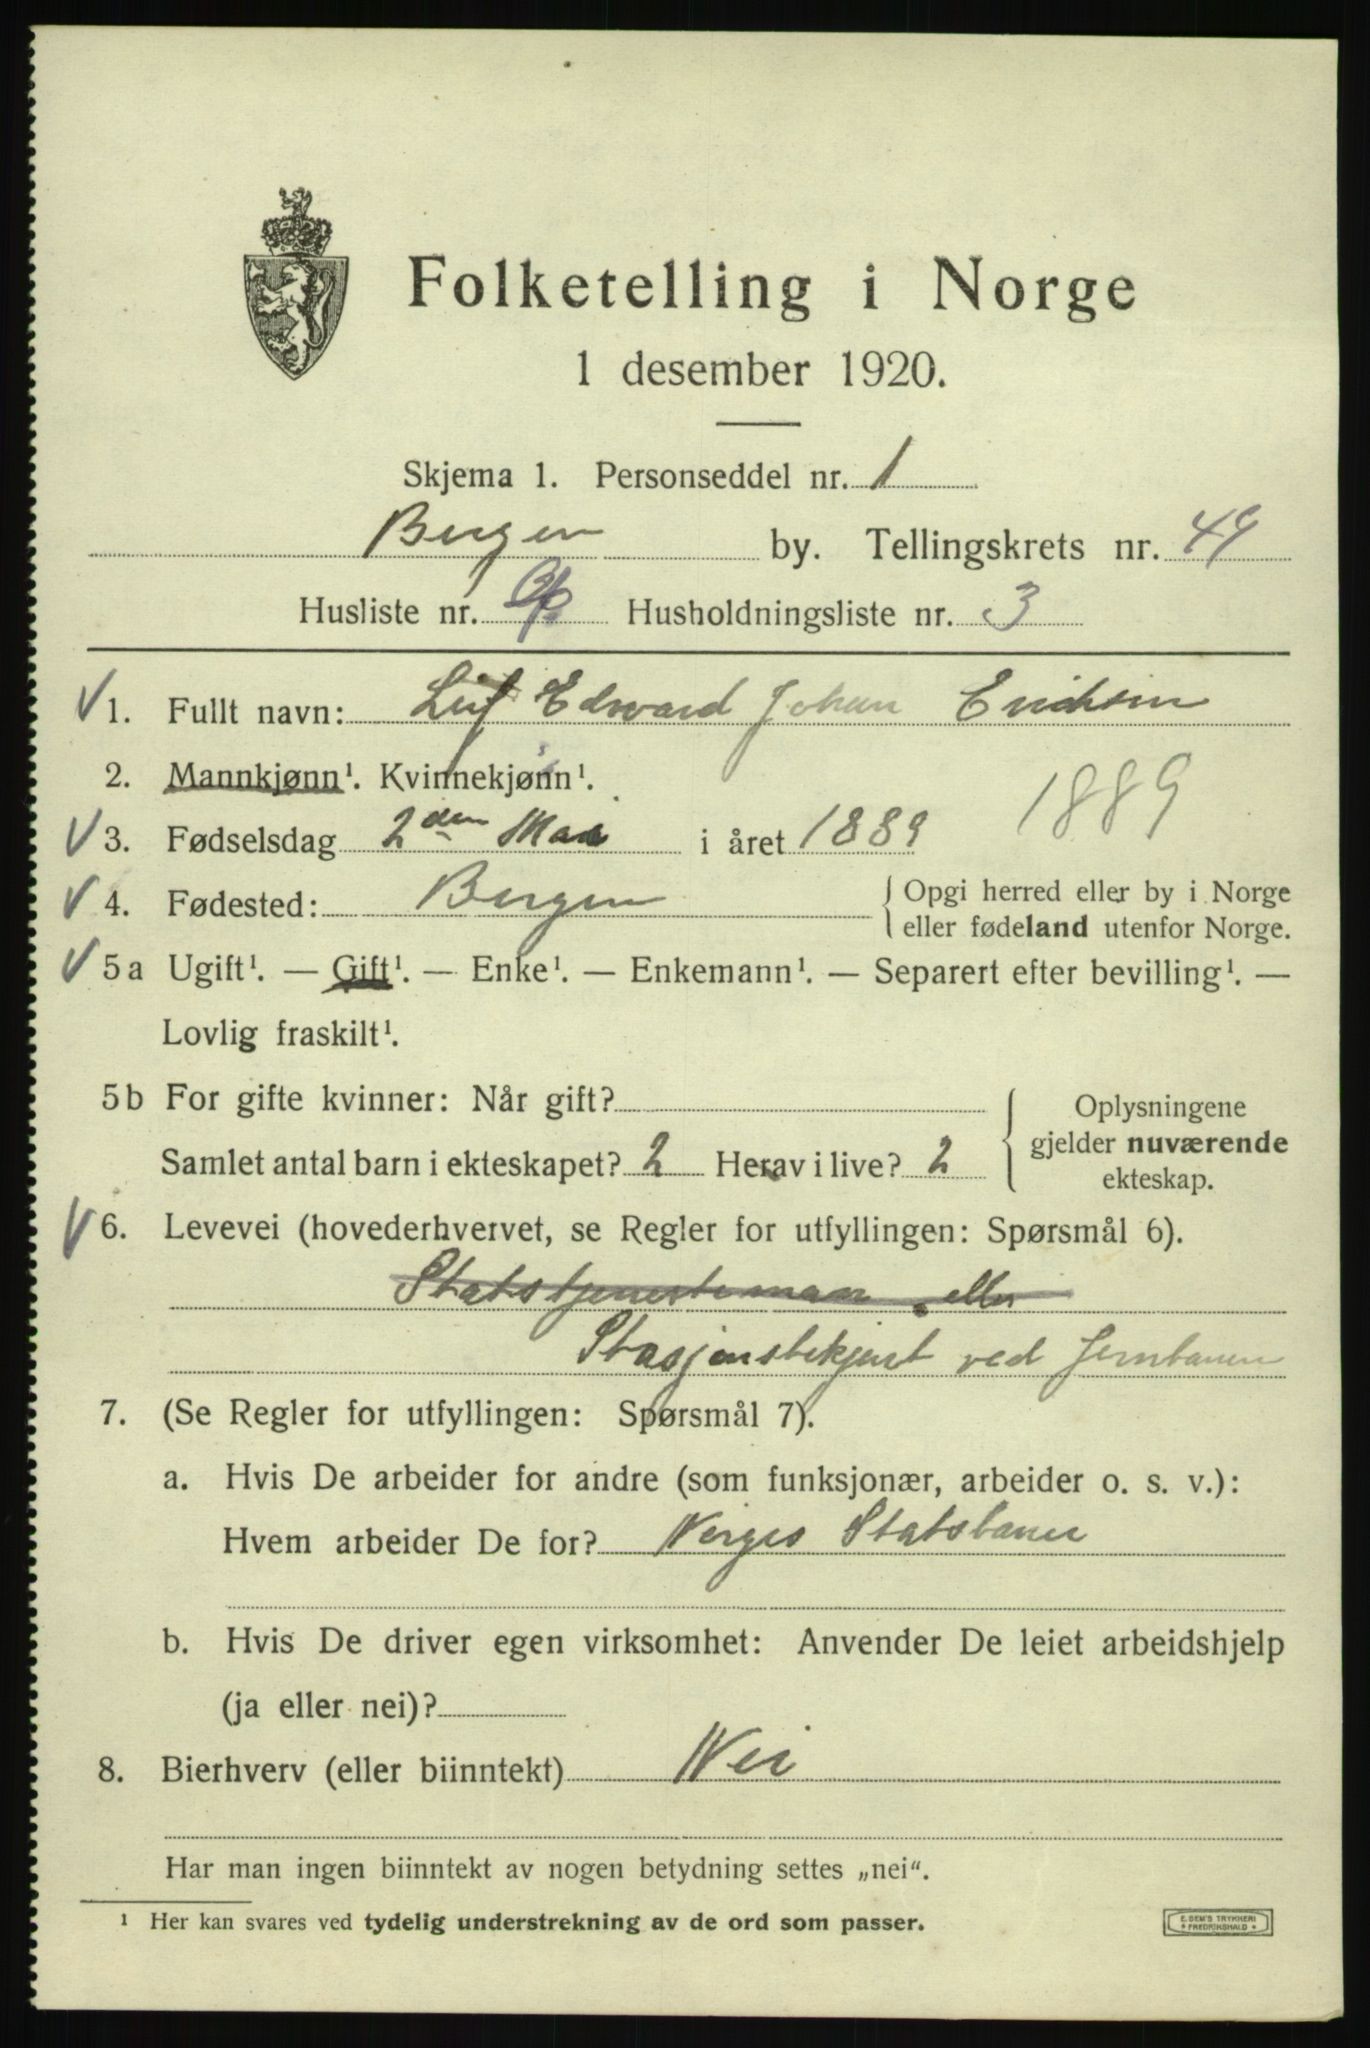 Folketelling i Norge
1 desember 1920.
Skjema 1. Personseddel nr. 1
Bergen by. Tellingskrets nr. 49
Husliste nr. Husholdningsliste nr. 3
1. Fullt navn: Leif Edward Johan Erichsen
2. Mannkjønn¹. Kvinnekjønn¹.
1889
3. Fødselsdag 2den Mai i året 1889
4. Fødested: Bergen { Opgi herred eller by i Norge
eller fødeland utenfor Norge.
5a Ugift¹. — Gift¹. — Enke¹. — Enkemann¹. — Separert efter bevilling¹. —
Lovlig fraskilt¹.
5b For gifte kvinner: Når gift?
Samlet antal barn i ekteskapet? 2 Herav i live? 2
{ Oplysningene
gjelder nuværende
ekteskap.
6. Levevei (hovederhvervet, se Regler for utfyllingen: Spørsmål 6).
Statstjenestemann eller
Stasjonsbetjent ved Jernbanen
7. (Se Regler for utfyllingen: Spørsmål 7).
a. Hvis De arbeider for andre (som funksjonær, arbeider o. s. v.):
Hvem arbeider De for? Norges Statsbaner
b. Hvis De driver egen virksomhet: Anvender De leiet arbeidshjelp
(ja eller nei)?
8. Bierhverv (eller biinntekt) Nei
Har man ingen biinntekt av nogen betydning settes „nei".
¹ Her kan svares ved tydelig understrekning av de ord som passer.
E. SEM'S TRYKKERI
FREDRIKSHALD